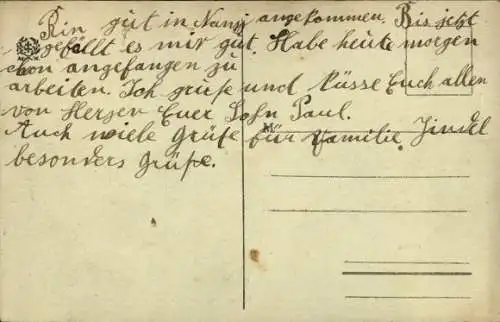 Bin gut in Nanzi angekommen. Bis jetzt
gefällt es mir gut. Habe heute morgen
schon angefangen zu
arbeiten. Ich grüße und küsse Euch allen
von Herzen Euer Sohn Paul.
Auch viele Grüße für Familie Jindel
besonders Grüße.
M